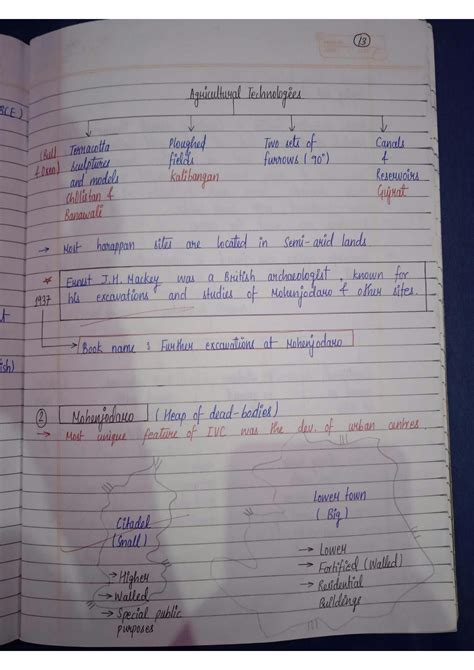 13
BCE)
Agricultural Technologies
(Bull & Oxen) Terracotta sculptures and models
Cholistan & Banawali
Ploughed fields
Kalibangan
Two sets of furrows (90°)
Canals & Reservoirs
Gujrat
→ Most harappan sites are located in Semi-arid lands.
* Ernest J.H. Mackey was a British archaeologist, known for
his excavations and studies of Mohenjodaro & other sites.
1937
→ Book name : Further excavations at Mohenjodaro
② Mohenjodaro (Heap of dead-bodies)
→ Most unique feature of IVC was the dev. of urban centres.
Citadel
(Small)
→ Higher
→ Walled
→ Special public
purposes
Lower town
(Big)
→ Lower
→ Fortified (Walled)
→ Residential
Buildings